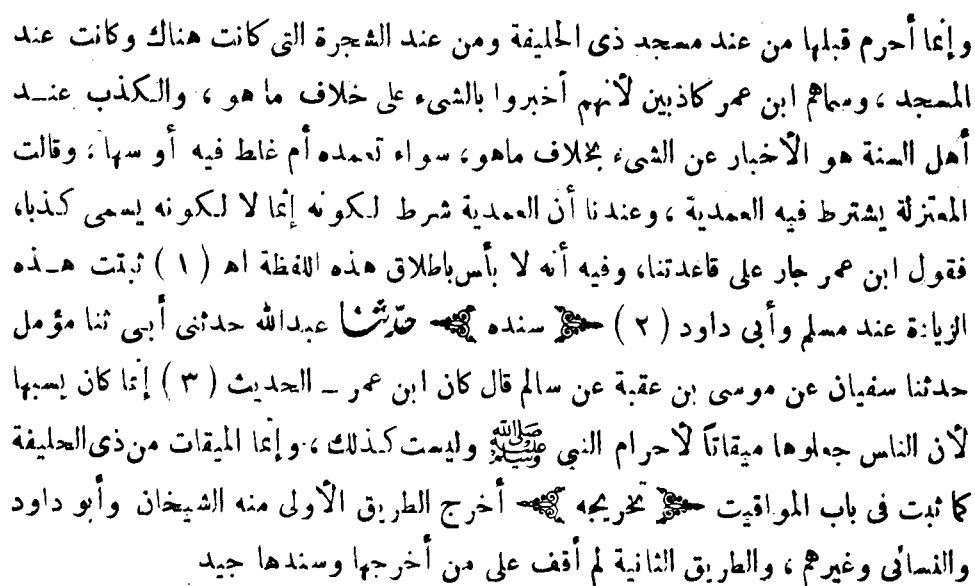 وإنما أحرم قبلها من عند مسجد ذى الحليفة ومن عند الشجرة التى كانت هناك وكانت عند
المسجد ، وسماهم ابن عمر كاذبين لأنهم أخبروا بالشىء على خلاف ما هو ، والكذب عنــد
أهل السنة هو الأخبار عن الشىء بخلاف ماهو، سواء تعمده أم غلط فيه أو سها ، وقالت
المعتزلة يشترط فيه العمدية ، وعندنا أن العمدية شرط لكونه إثما لا لكونه يسمى كذبا،
فقول ابن عمر جار على قاعدتنا، وفيه أنه لا بأس باطلاق هذه اللفظة اهـ ( ١ ) ثبتت هـذه
الزيادة عند مسلم وأبى داود ( ٢ ) سنده حدثنا عبدالله حدثنى أبى ثنا مؤمل
حدثنا سفيان عن موسى بن عقبة عن سالم قال كان ابن عمر ـ الحديث ( ٣ ) إنما كان يسبها
لأن الناس جعلوها ميقاتاً لأحرام النبى ﷺ وليست كذلك ، وإنما الميقات من ذى الحليفة
كما ثبت فى باب المواقيت تخريجه أخرج الطريق الأولى منه الشيخان وأبو داود
والنسائى وغيرهم ، والطريق الثانية لم أقف على من أخرجها وسندها جيد